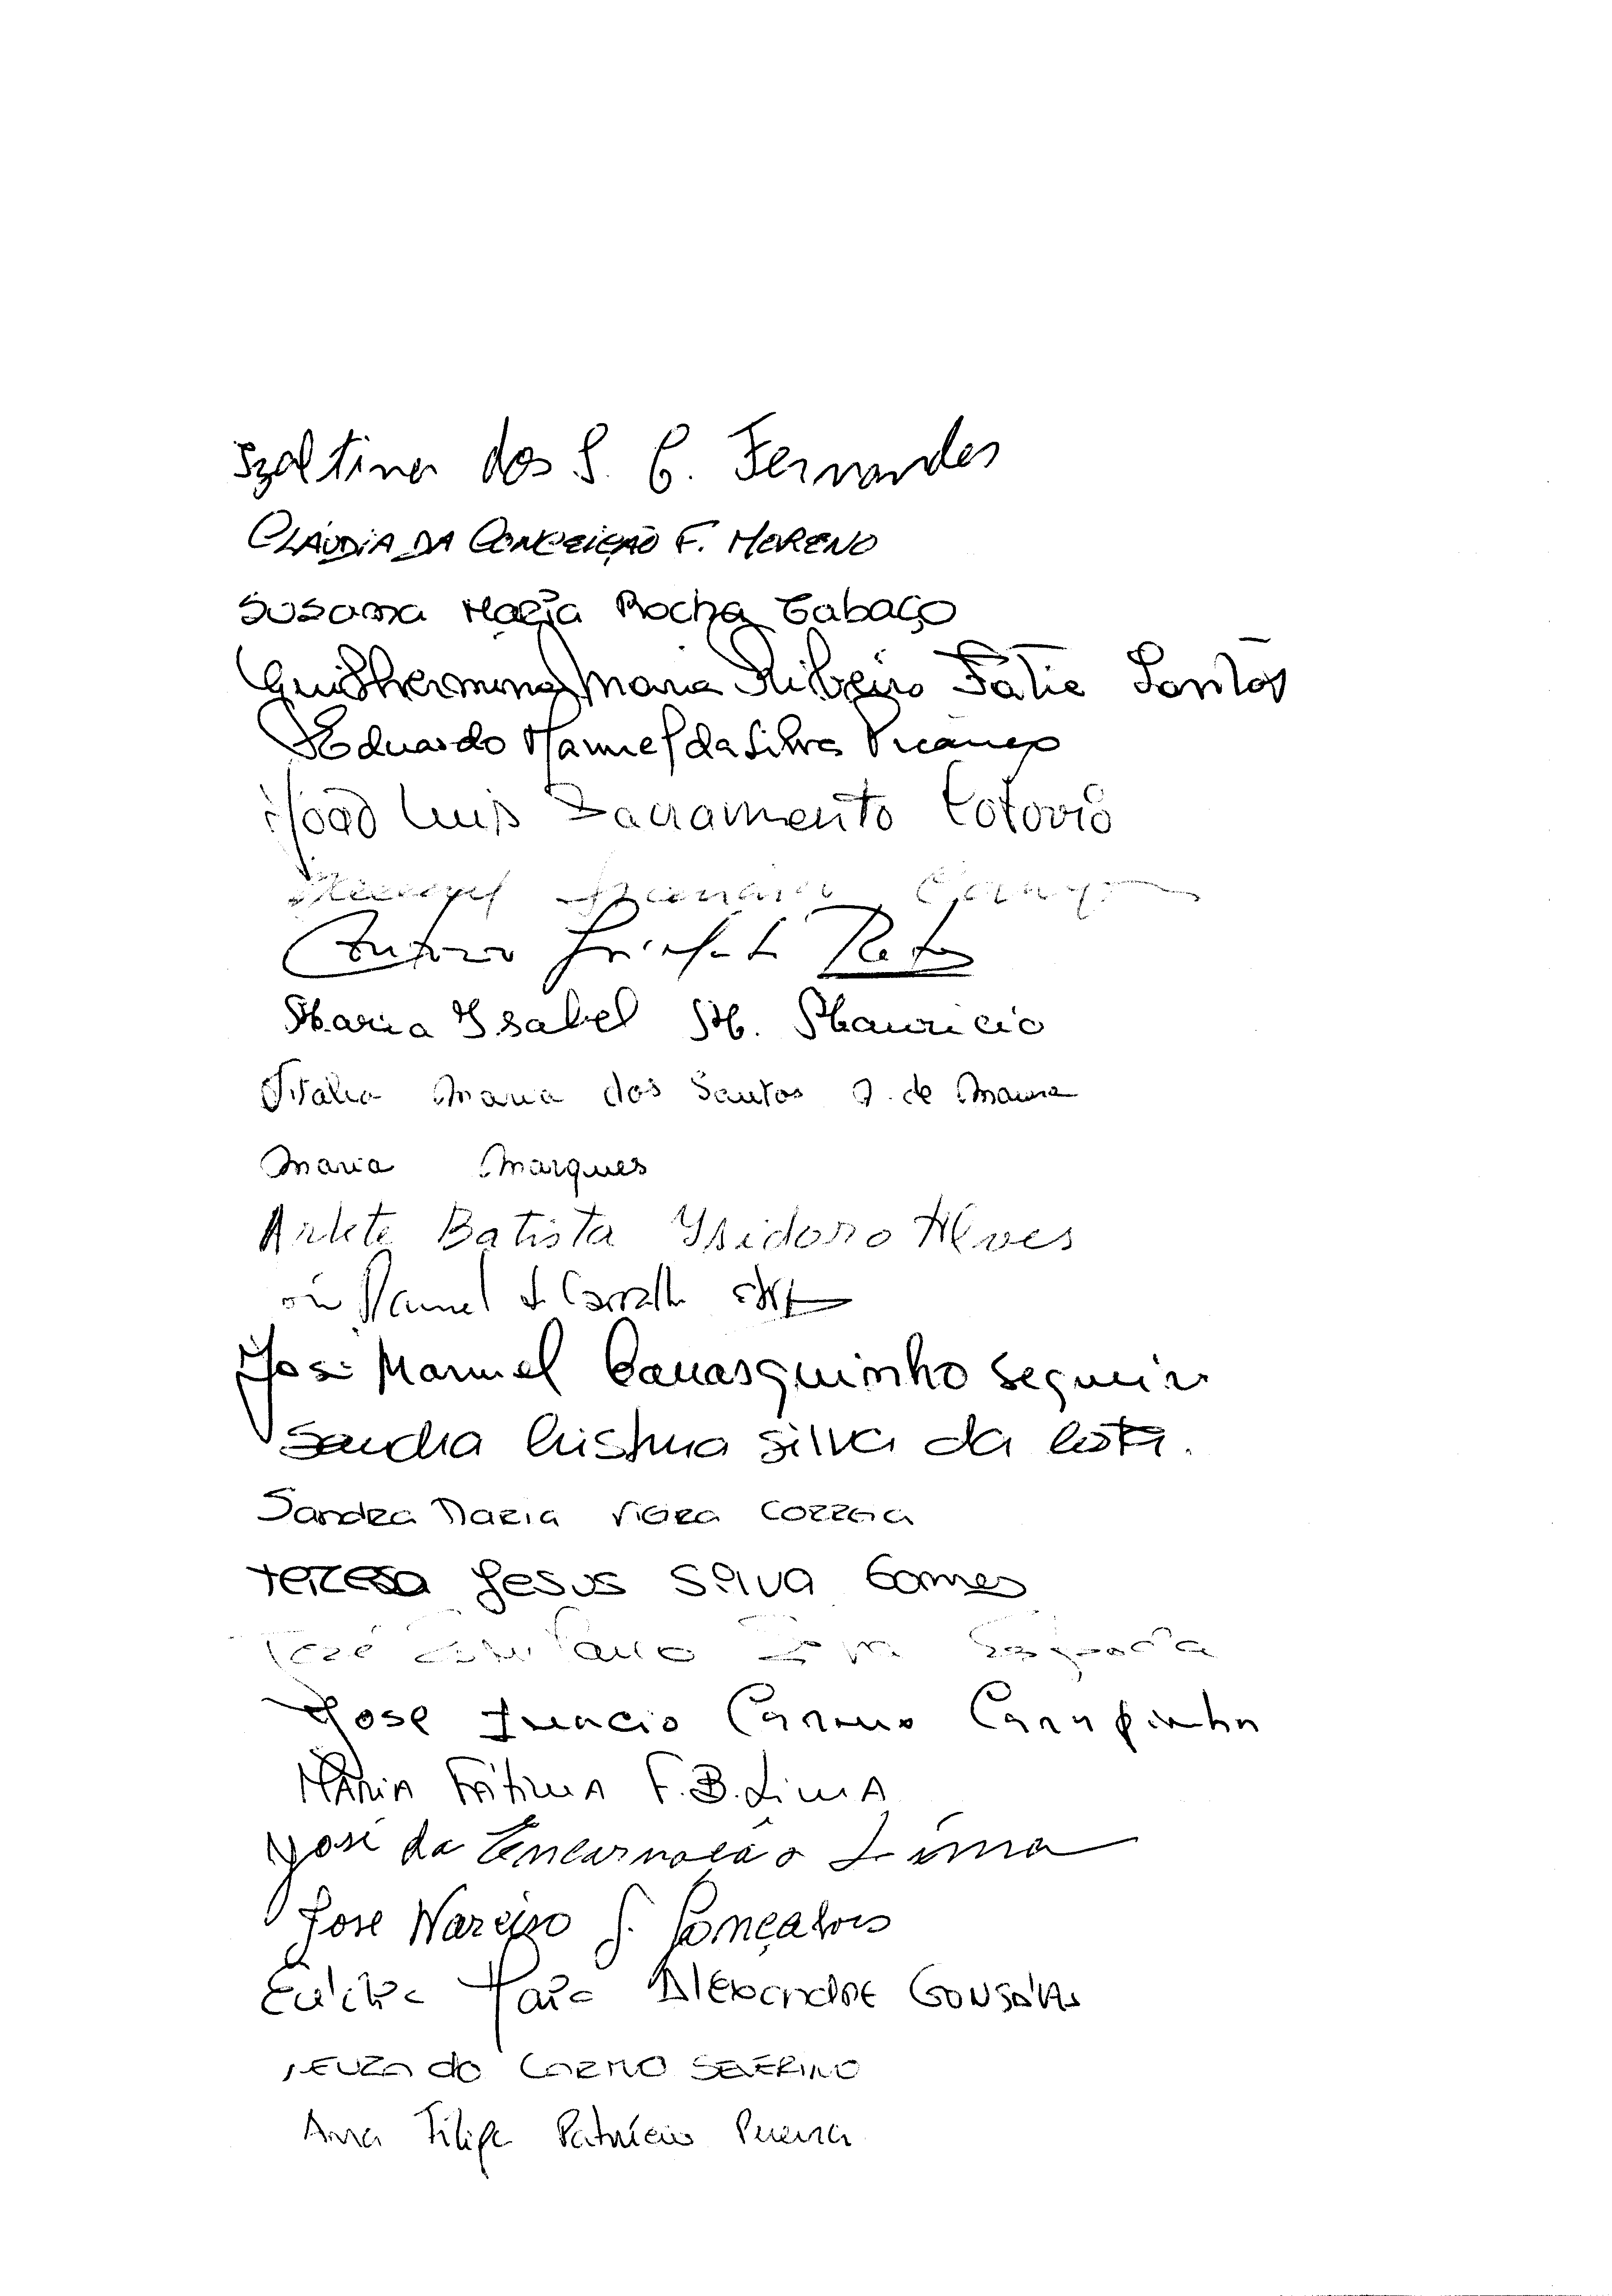 Izaltina dos S. C. Fernandes
CLÁUDIA DA CONCEIÇÃO F. MORENO
Susana Maria Rocha Tabaço
Guilhermina Maria Ribeiro Fatia Santos
Eduardo Manuel da Silva Picanço
João Luis Sacramento Cotovio
António
Maria Isabel M. Mauricio
Maria dos Santos
Maria Marques
Arlete Batista Isidoro Alves
Manuel
José Manuel Carrasquinho Sequeira
Sandra Cristina Silva da Costa.
Sandra Maria Vieira Correia
Teresa Jesus Silva Gomes
José
Jose Inacio Carmo Carapinha
MARIA FÁTIMA F.B. LIMA
José da Encarnação Lima
José Narciso S. Gonçalves
Maria Alexandre Gonsalves
NEUZA do CARMO SEVERINO
Ana Filipa Patrício Pereira